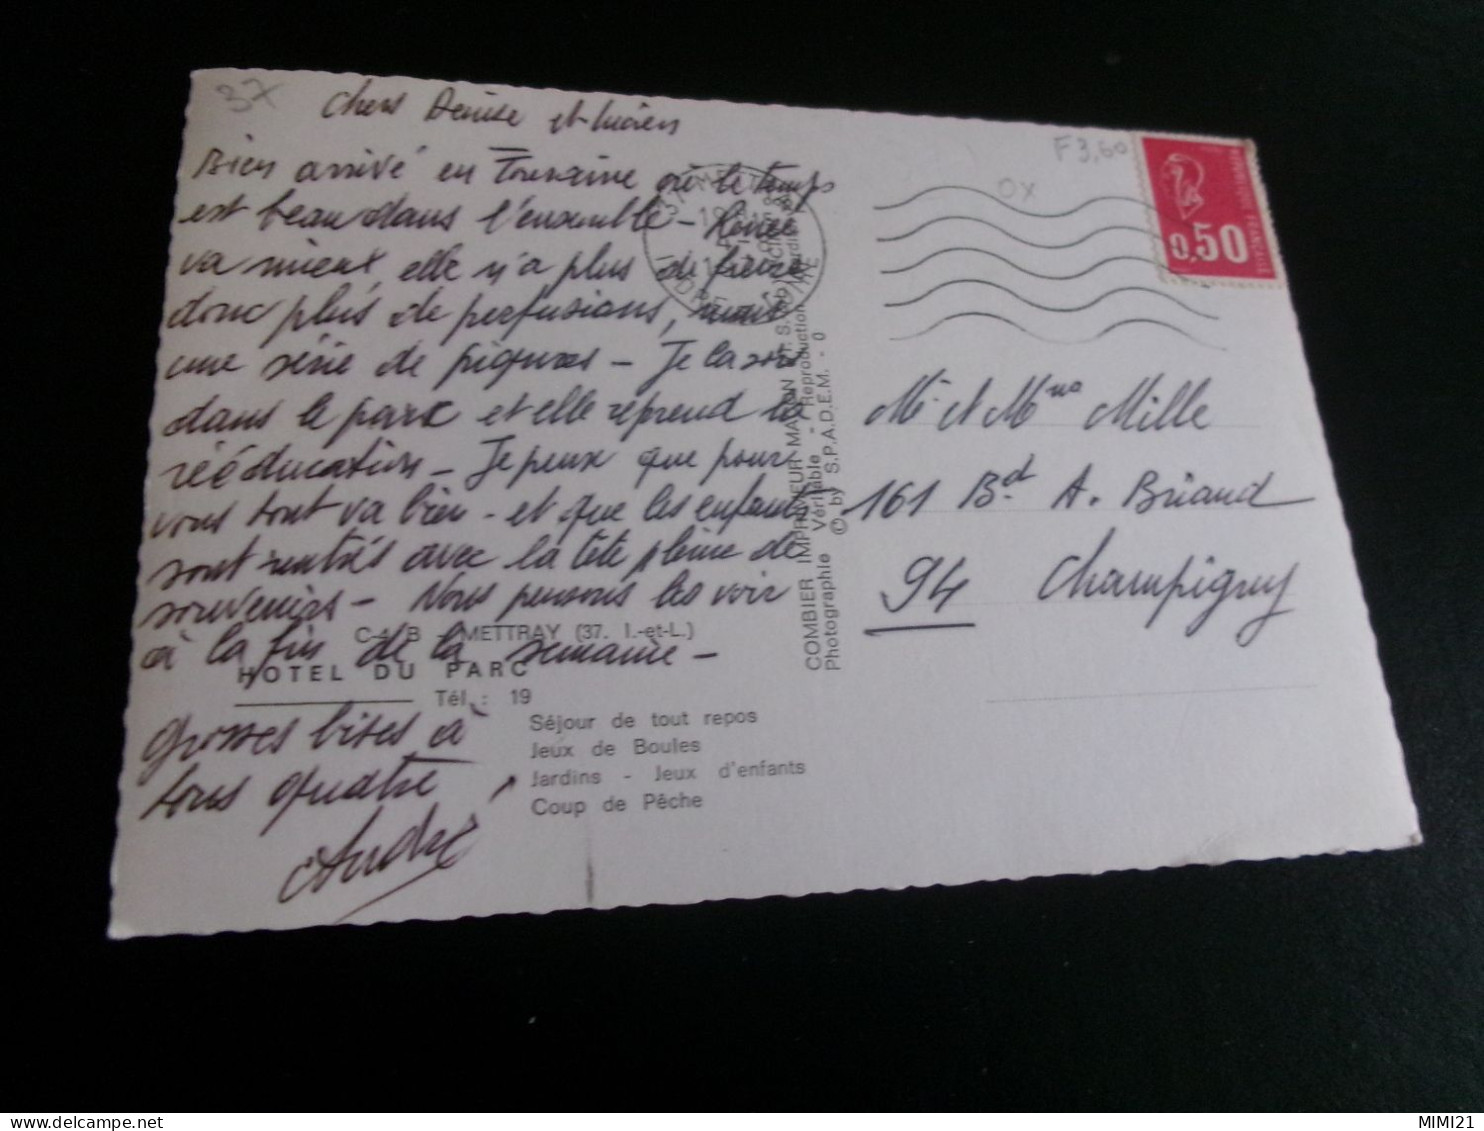 37
Chers Denise et Lucien
Bien arrivé en Touraine où le temps
est beau dans l'ensemble - Renée
va mieux, elle n'a plus de fièvre
donc plus de perfusions,
une série de piqures - Je la sors
dans le parc et elle reprend la
rééducation - Je peux que pour
vous tout va bien - et que les enfants
sont rentrés avec la tête pleine de
souvenirs - Nous pensons les voir
à la fin de la semaine -
Grosses bises à
tous quatre
André
METTRAY (37. I.-et-L.)
HOTEL DU PARC
Tél. : 19
Séjour de tout repos
Jeux de Boules
Jardins - Jeux d'enfants
Coup de Pêche
COMBIER IMPRIMEUR MACON
Photographie Véritable - Reproduction
© by S.P.A.D.E.M. - 0
F3,60
OX
0,50
Mr et Mme Mille
161 Bd A. Briand
94 Champigny
MIMI21